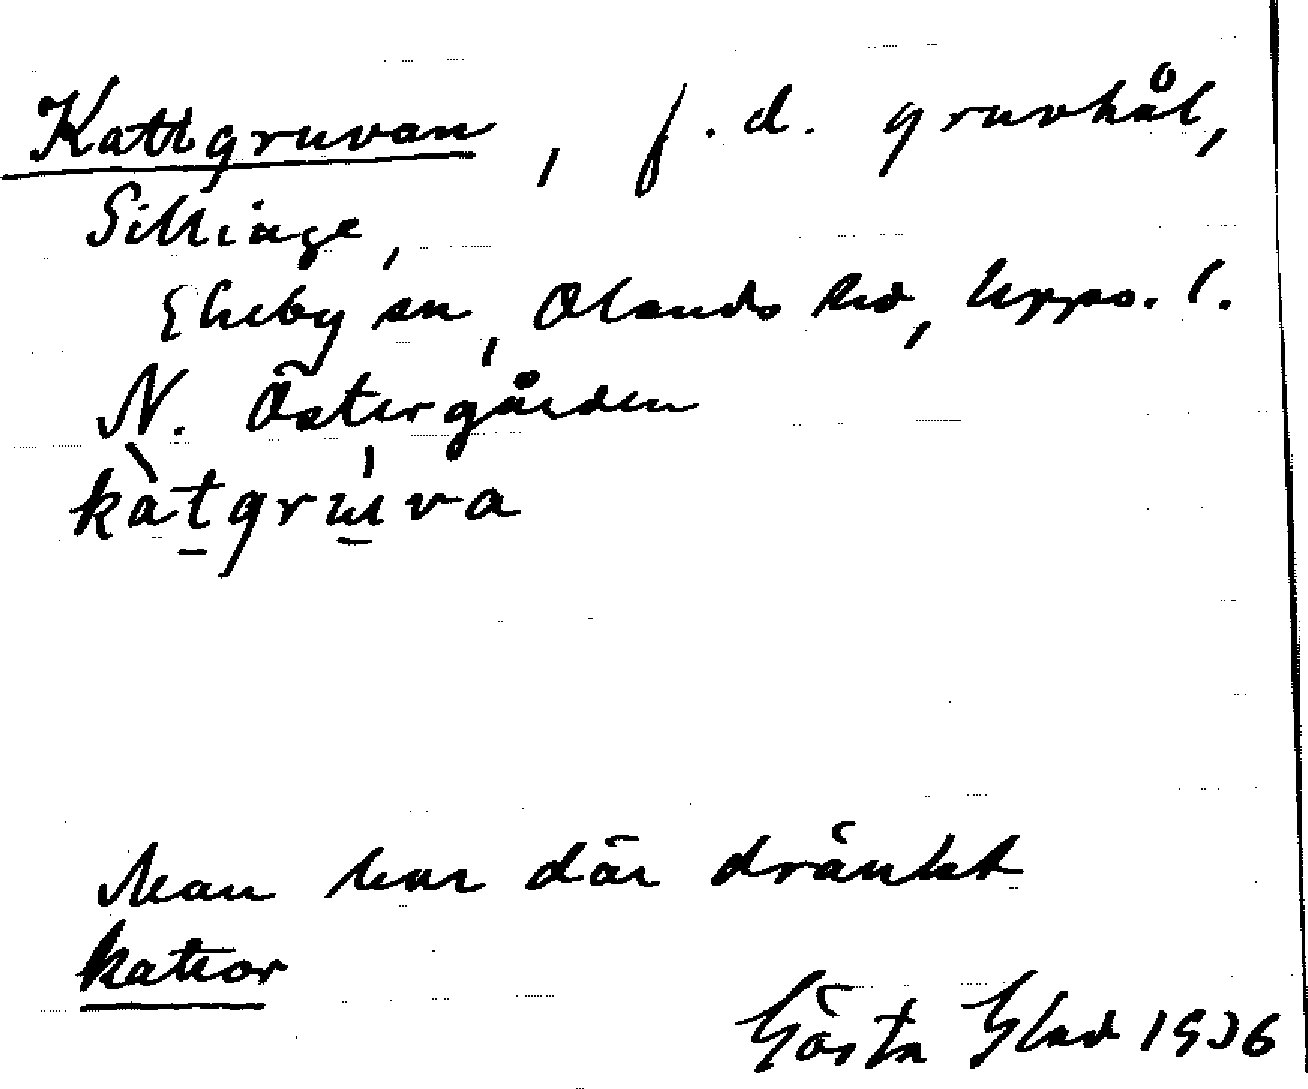 Kattgruvan, f.d. gruvhål,
Sillinge,
Ekeby sn, Olands hd, Upps. l.
N. Östergården
kàtgrúva
Man har där dränkt
kattor
Gösta Glad 1936